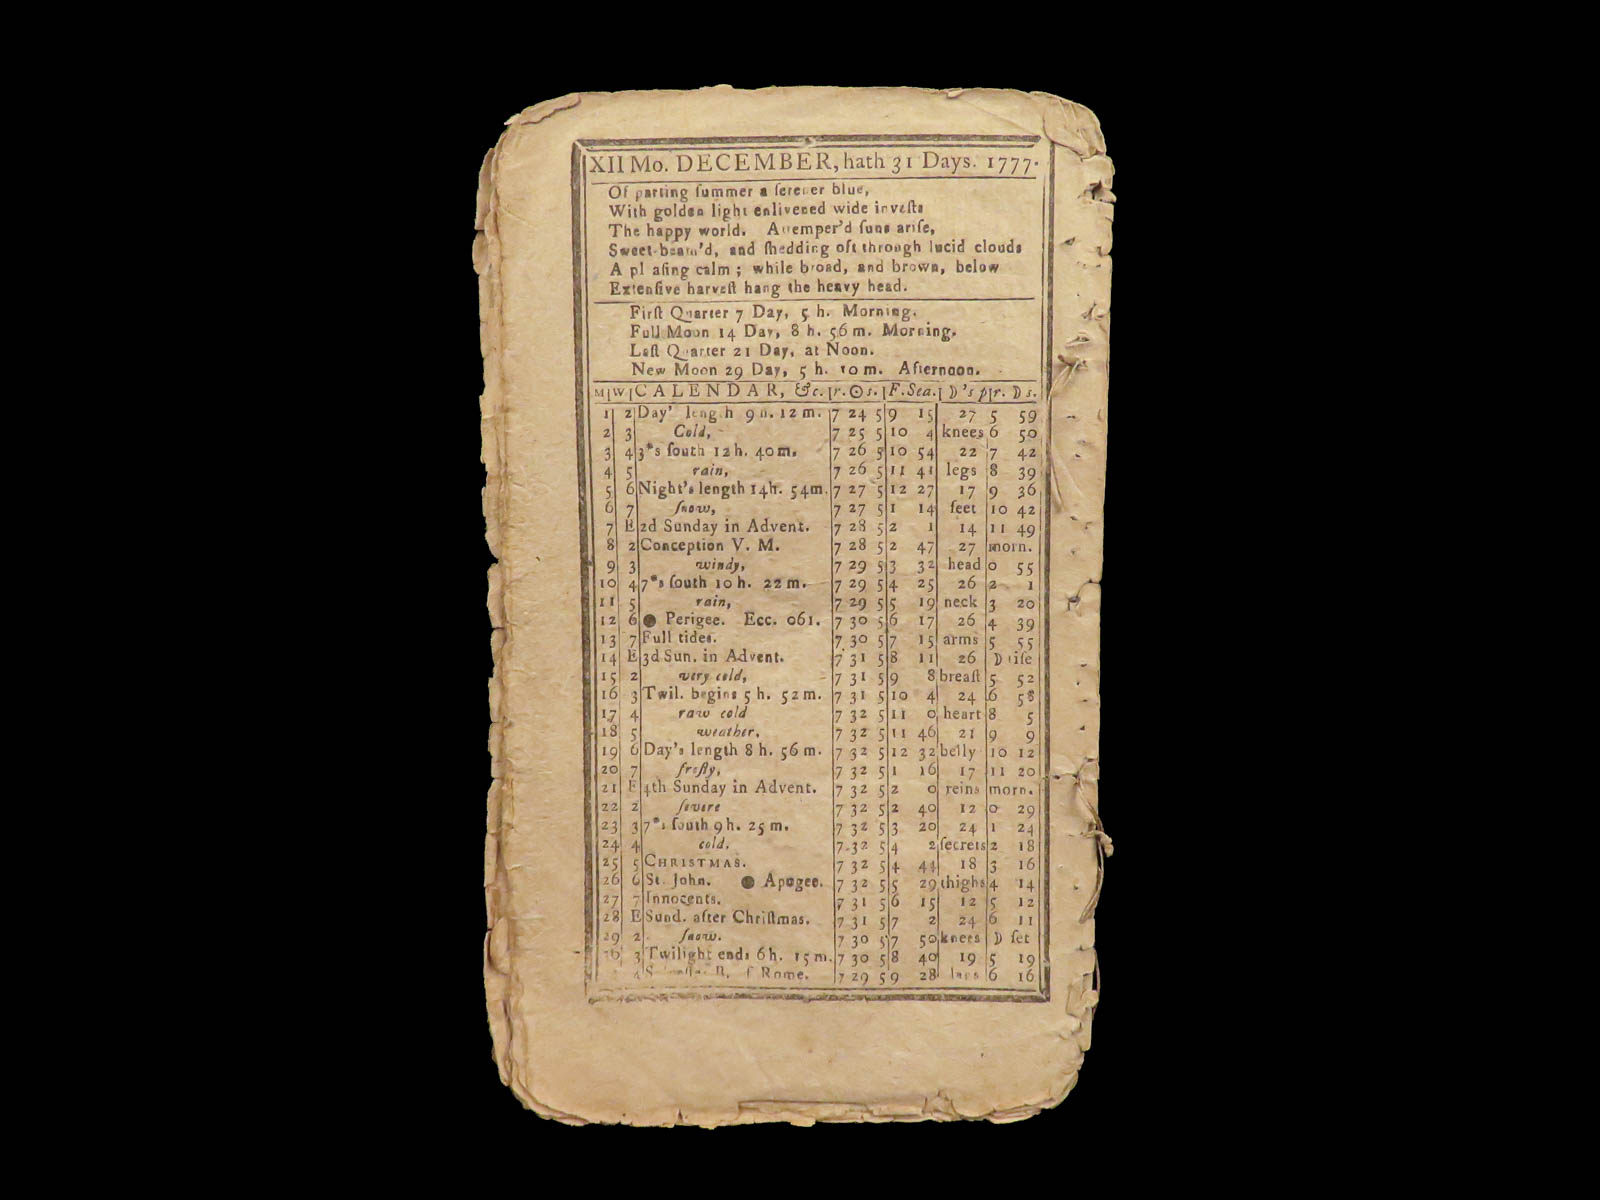 XII Mo. DECEMBER, hath 31 Days. 1777.
Of parting ſummer a ſerener blue,
With golden light enlivened wide inveſts
The happy world. Attemper'd ſuns ariſe,
Sweet-beam'd, and ſhedding oft through lucid clouds
A pl aſing calm ; while broad, and brown, below
Extenſive harveſt hang the heavy head.
Firſt Quarter 7 Day, 5 h. Morning.
Full Moon 14 Day, 8 h. 56 m. Morning.
Laſt Quarter 21 Day, at Noon.
New Moon 29 Day, 5 h. 10 m. Afternoon.
M|W|CALENDAR, &c.|r. ☉ s.|F. Sea.|☽'s p|r. ☽ s.
1 2 Day' length 9 h. 12 m. 7 24 5 9 15 27 5 59
2 3 Cold, 7 25 5 10 4 knees 6 50
3 4 3*s ſouth 12 h. 40m. 7 26 5 10 54 22 7 42
4 5 rain, 7 26 5 11 41 legs 8 39
5 6 Night's length 14h. 54m. 7 27 5 12 27 17 9 36
6 7 ſnow, 7 27 5 1 14 feet 10 42
7 E 2d Sunday in Advent. 7 28 5 2 1 14 11 49
8 2 Conception V. M. 7 28 5 2 47 27 morn.
9 3 windy, 7 29 5 3 32 head 0 55
10 4 7*s ſouth 10 h. 22 m. 7 29 5 4 25 26 2 1
11 5 rain, 7 29 5 5 19 neck 3 20
12 6 ● Perigee. Ecc. 061. 7 30 5 6 17 26 4 39
13 7 Full tides. 7 30 5 7 15 arms 5 55
14 E 3d Sun. in Advent. 7 31 5 8 11 26 ☽ riſe
15 2 very cold, 7 31 5 9 8 breaſt 5 52
16 3 Twil. begins 5 h. 52 m. 7 31 5 10 4 24 6 58
17 4 raw cold 7 32 5 11 0 heart 8 5
18 5 weather, 7 32 5 11 46 21 9 9
19 6 Day's length 8 h. 56 m. 7 32 5 12 32 belly 10 12
20 7 froſty, 7 32 5 1 16 17 11 20
21 E 4th Sunday in Advent. 7 32 5 2 0 reins morn.
22 2 ſevere 7 32 5 2 40 12 0 29
23 3 7*s ſouth 9 h. 25 m. 7 32 5 3 20 24 1 24
24 4 cold. 7 32 5 4 2 ſecrets 2 18
25 5 CHRISTMAS. 7 32 5 4 44 18 3 16
26 6 St. John. ● Apogee. 7 32 5 5 29 thighs 4 14
27 7 Innocents. 7 31 5 6 15 12 5 12
28 E Sund. after Chriſtmas. 7 31 5 7 2 24 6 11
29 2 ſnow. 7 30 5 7 50 knees ☽ ſet
3 Twilight ends 6 h. 15 m. 7 30 5 8 40 19 5 19
4 Rome. 7 29 5 9 28 legs 6 16